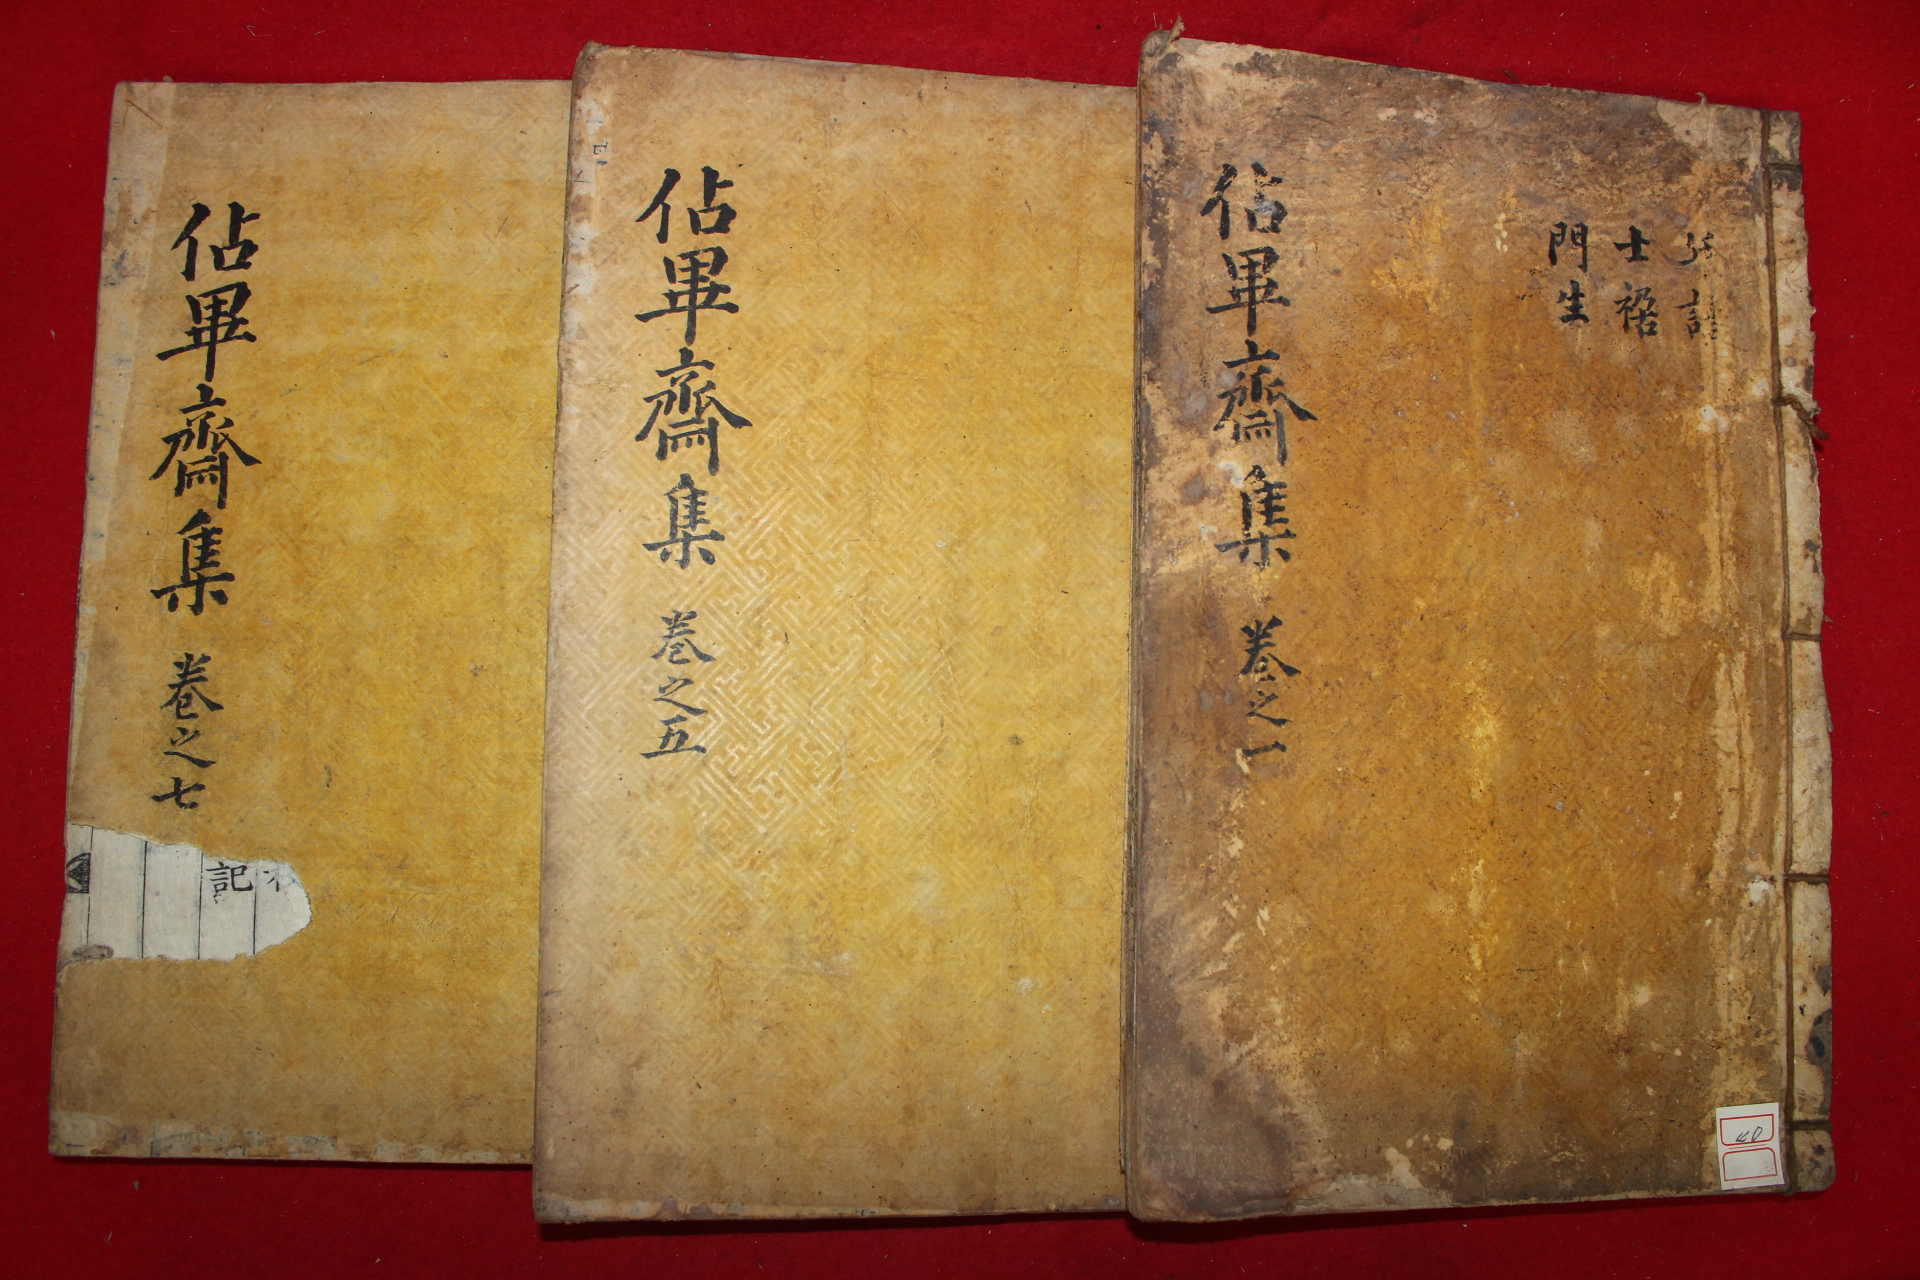 年譜
士裾
門生
佔畢齋集 卷之一
佔畢齋集 卷之五
佔畢齋集 卷之七
記
40